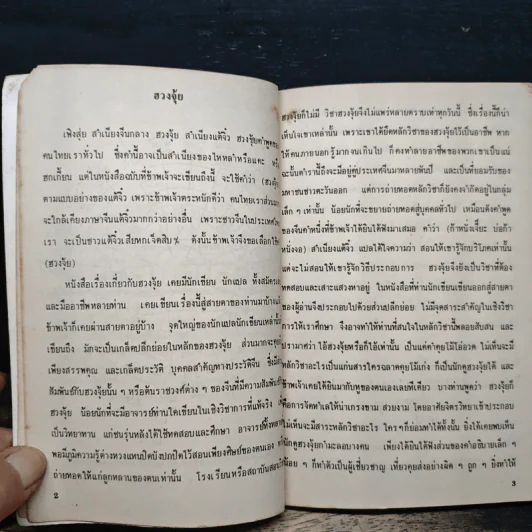 ฮวงจุ้ย
เฟิงสุ่ย สำเนียงจีนกลาง ฮวงจุ้ย สำเนียงแต้จิ๋ว ฮวงจุ้ยคำพูดของ
คนไทยเราทั่วไป ซึ่งคำนี้อาจเป็นสำเนียงของไหหลำหรือแคะ หรือ
ฮกเกี้ยน แต่ในหนังสือฉบับที่ข้าพเจ้าจะเขียนถึงนี้ จะใช้คำว่า (ฮวงจุ้ย)
ตามแบบอย่างของแต้จิ๋ว เพราะข้าพเจ้าตระหนักดีว่า คนไทยเราส่วนมาก
จะใกล้เคียงภาษาจีนแต้จิ๋วมากกว่าอย่างอื่น เพราะชาวจีนในประเทศไทย
เรา จะเป็นชาวแต้จิ๋วเสียหกเจ็ดสิบ % ดังนั้นข้าพเจ้าจึงขอเลือกใช้คำ
(ฮวงจุ้ย)
หนังสือเรื่องเกี่ยวกับฮวงจุ้ย เคยมีนักเขียน นักแปล ทั้งสมัครเล่น
และมืออาชีพหลายท่าน เคยเขียนเรื่องนี้สู่สายตาของท่านมาบ้างแล้ว
ข้าพเจ้าก็เคยผ่านสายตาอยู่บ้าง จุดใหญ่ของนักแปลนักเขียนเหล่านั้น
เขียนถึง มักจะเป็นเกล็ดปลีกย่อยในหลักของฮวงจุ้ย ส่วนมากจะคุย
เพียงสรรพคุณ และเกล็ดประวัติ บุคคลสำคัญทางประวัติจีน ซึ่งมี
สัมพันธ์กับฮวงจุ้ยนั้น ๆ หรือต้นราชวงศ์ต่าง ๆ ของจีนที่มีความสัมพันธ์
ฮวงจุ้ย น้อยนักที่จะมีอาจารย์ท่านใดเขียนในเชิงวิชาการที่แท้จริง
เป็นวิทยาทาน แก่ชนรุ่นหลังได้ใช้ทดสอบและศึกษา อาจารย์ที่
พอมีภูมิความรู้ต่างหวงแหนปิดบังปกปิดไว้สอนเพียงศิษย์ของตนเอง
ถ่ายทอดให้แก่ลูกหลานของตนเท่านั้น โรงเรียนหรือสถาบันสอน
2
ฮวงจุ้ยก็ไม่มี วิชาฮวงจุ้ยจึงไม่แพร่หลายตราบเท่าทุกวันนี้ ซึ่งเรื่องนี้ก็น่า
เห็นใจเขาเหล่านั้น เพราะเขาได้ยึดหลักวิชาของฮวงจุ้ยไว้เป็นอาชีพ หาก
ให้คนภายนอกรู้มากจนเกินไป ก็คงทำลายอาชีพของพวกเขาเป็นแน่
ฉะนั้นตำรานี้ถึงจะมีอยู่คู่ประเทศจีนมาหลายพันปี และเป็นที่ยอมรับของ
มหาชนชาวตะวันออก แต่การถ่ายทอดหลักวิชาก็ยังคงจำกัดอยู่ในกลุ่ม
เล็ก ๆ เท่านั้น น้อยนักที่จะขยายถ่ายทอดสู่บุคคลทั่วไป เหมือนดังคำพูด
ของจีนคำหนึ่งที่ข้าพเจ้าได้ยินได้ฟังมาเสมอ คำว่า
หนึ่งจอ) สำเนียงแต้จิ๋ว แปลได้ใจความว่า สอนให้เขารู้จักบริโภคเท่านั้น
แต่จะไม่สอนให้เขารู้จักวิธีประกอบการ ฮวงจุ้ยจึงยังเป็นวิชาที่ต้อง
ทดสอบและเสาะแสวงหาอยู่ ในหนังสือที่ท่านนักเขียนเขียนออกสู่สายตา
ของผู้อ่านจึงประกอบไปด้วยส่วนปลีกย่อย ไม่มีจุดสาระสำคัญในเชิงวิชา
การให้เราศึกษา จึงอาจทำให้ท่านที่สนใจในหลักวิชานี้พลอยสับสน และ
ปรามาสว่า ไอ้ฮวงจุ้ยหรือก็ไอ้เท่านั้น เป็นแค่คำคุยโม้โอ้อวด ไม่เห็นจะมี
หลักวิชาอะไรเป็นแก่นสารใครฉลาดคุยโม้เก่ง ก็เป็นนักดูฮวงจุ้ยได้ และ
ข้าพเจ้าเคยได้ยินกับหูของตนเองเลยทีเดียว บางท่านพูดว่า ฮวงจุ้ยก็
คือการจัดทำเลให้น่าเกรงขาม สวยงาม โดยอาศัยจิตวิทยาเข้าประกอบ
ไม่เห็นจะมีสาระหลักวิชาอะไร ใครๆก็ย่อมทำได้ทั้งนั้น ยิ่งได้เคยพบเห็น
นักดูฮวงจุ้ยกำมะลอบางคน เพียงได้ยินได้ฟังส่วนของคำอธิบายเล็ก ๆ
น้อย ๆ ก็ทำตัวเป็นผู้เชี่ยวชาญ เที่ยวคุยส่งอย่างผิด ๆ ถูก ๆ ยิ่งทำให้
3